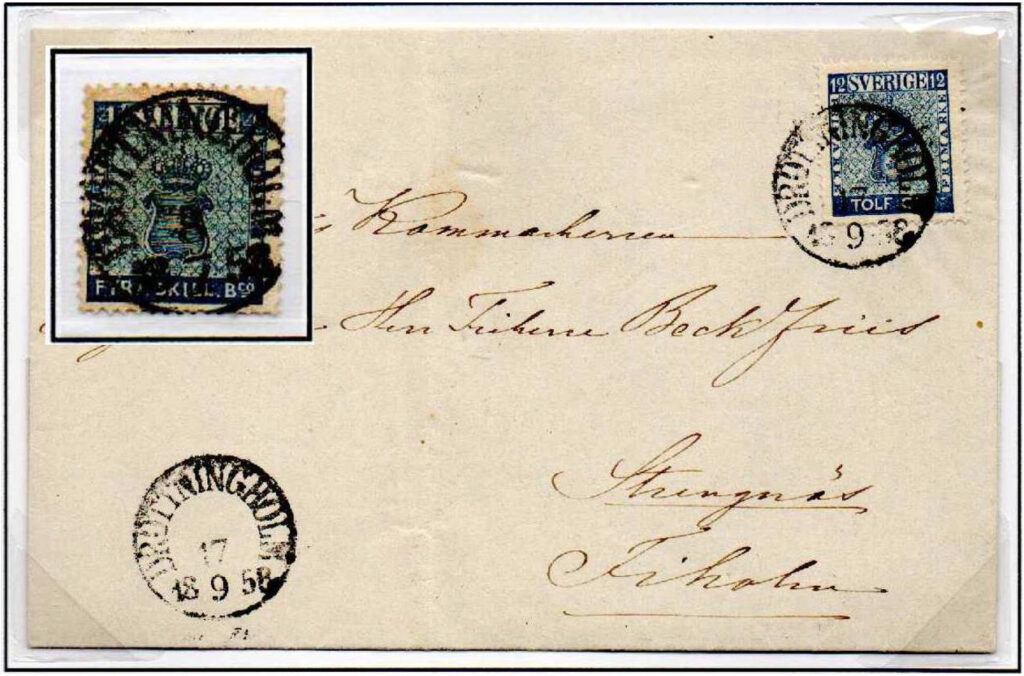 SVERIGE
FYRA SKILL. Bco
12 SVERIGE 12
FRIMÄRKE
TOLF
DROTTNINGHOLM
18 9 58
Kammarherren
Herr Friherre Beck Friis
Strengnäs
Fiholm
DROTTNINGHOLM
17
18 9 58